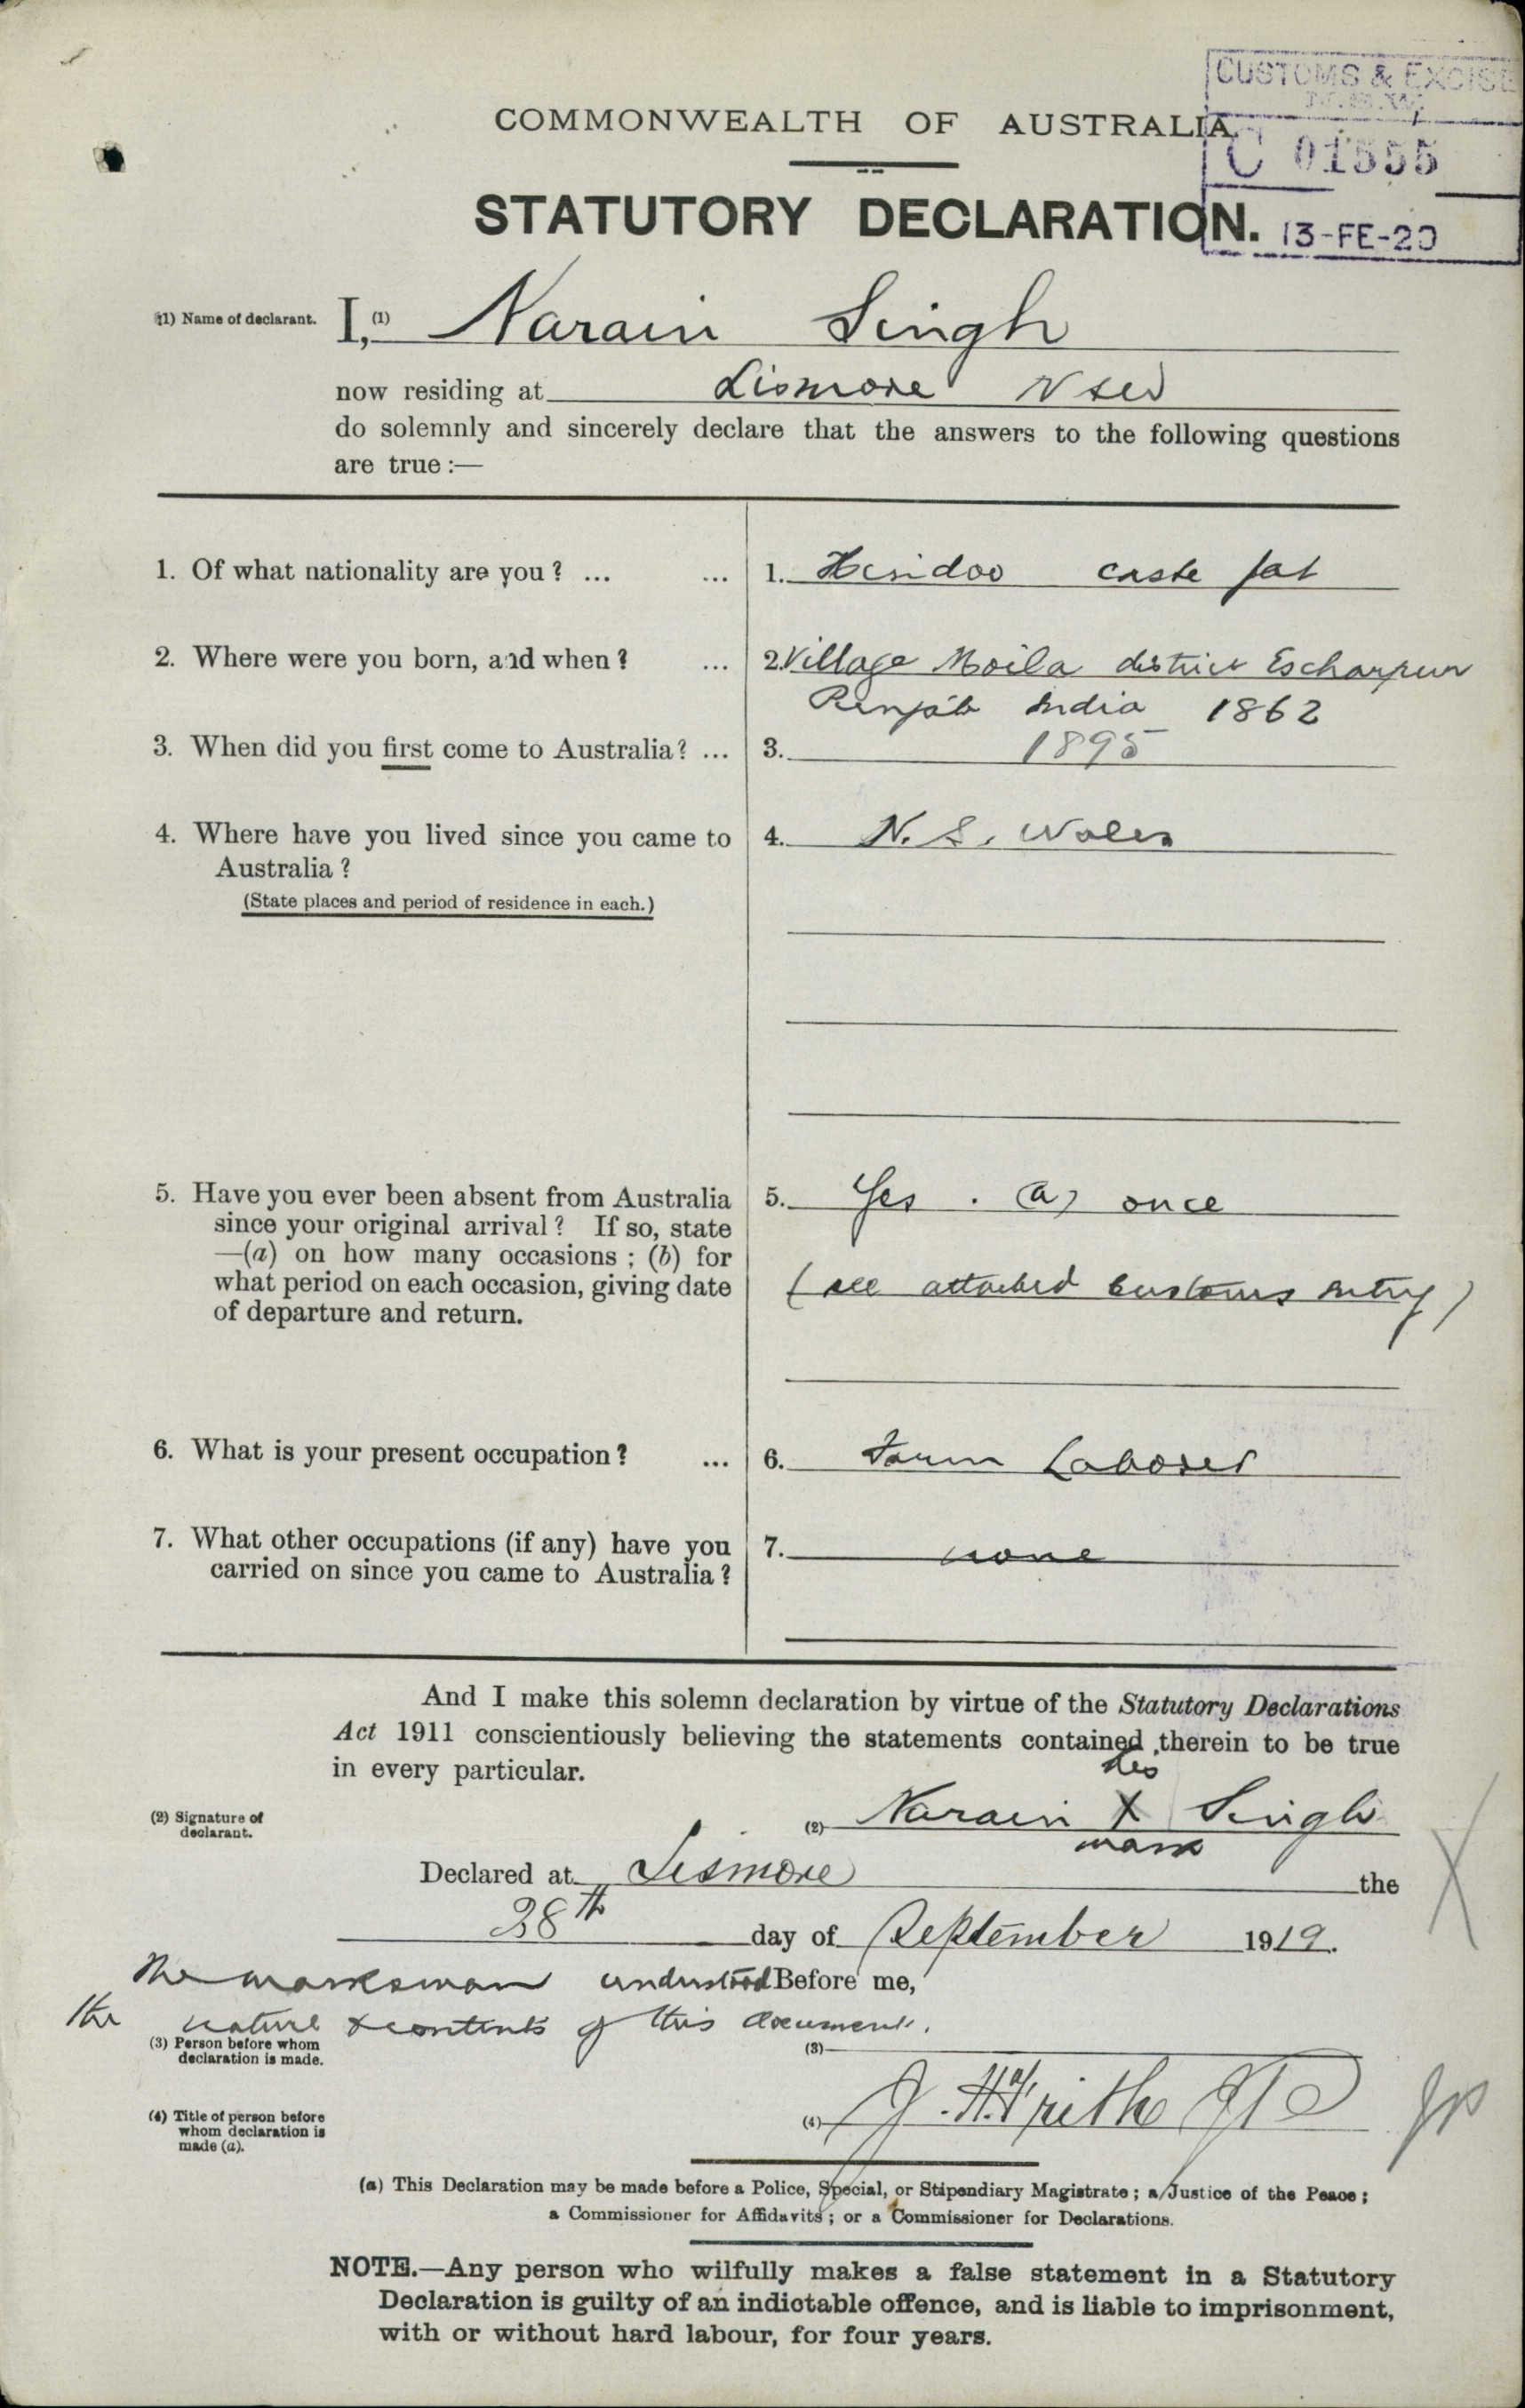 CUSTOMS & EXCISE
N.S.W.
C 01555
13-FE-20
COMMONWEALTH OF AUSTRALIA.
STATUTORY DECLARATION.
(1) Name of declarant. I, (1) Narain Singh
now residing at Lismore NSW
do solemnly and sincerely declare that the answers to the following questions
are true:—
1. Of what nationality are you? ... ... 1. Hindoo caste Jat
2. Where were you born, and when? ... 2. Village Moila district Escharpur
Punjab India 1862
3. When did you first come to Australia? ... 3. 1895
4. Where have you lived since you came to 4. N. S. Wales
Australia?
(State places and period of residence in each.)
5. Have you ever been absent from Australia 5. Yes. (a) once
since your original arrival? If so, state
—(a) on how many occasions; (b) for
what period on each occasion, giving date (see attached customs entry)
of departure and return.
6. What is your present occupation? ... 6. Farm Laborer
7. What other occupations (if any) have you 7. none
carried on since you came to Australia?
And I make this solemn declaration by virtue of the Statutory Declarations
Act 1911 conscientiously believing the statements contained therein to be true
in every particular.
his
(2) Signature of declarant. (2) Narain X Singh
mark
Declared at Lismore the
28th day of September 1919.
The marksman understood Before me,
the nature & contents of this document.
(3) Person before whom
declaration is made. (3)
(4) Title of person before
whom declaration is
made (a). (4) JP
(a) This Declaration may be made before a Police, Special, or Stipendiary Magistrate; a Justice of the Peace;
a Commissioner for Affidavits; or a Commissioner for Declarations.
NOTE.—Any person who wilfully makes a false statement in a Statutory
Declaration is guilty of an indictable offence, and is liable to imprisonment,
with or without hard labour, for four years.